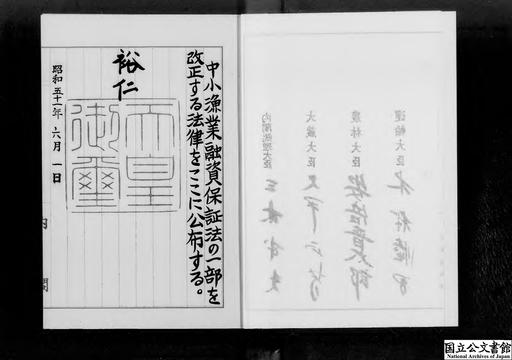 中小漁業融資保証法の一部を
改正する法律をここに公布する。
裕仁
天皇
御璽
昭和五十一年六月一日
内閣
運輸大臣
農林大臣
安倍晋太郎
大蔵大臣
大平正芳
内閣総理大臣
三木武夫
国立公文書館
National Archives of Japan